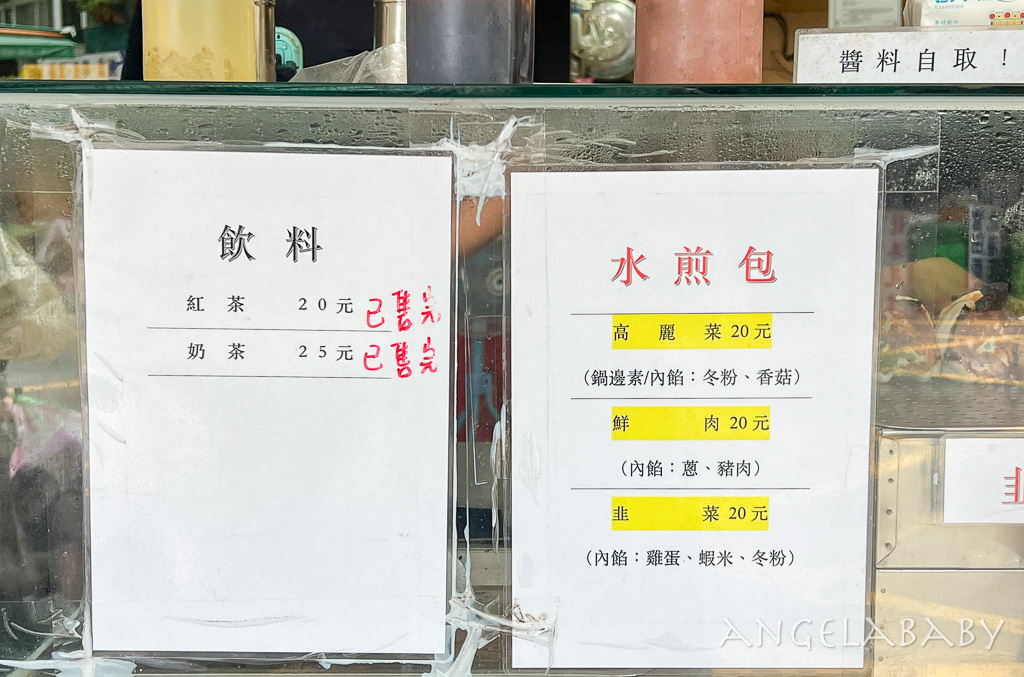 醬料自取！
飲料
紅茶 20元 已售完
奶茶 25元 已售完
水煎包
高麗菜 20元
（鍋邊素/內餡：冬粉、香菇）
鮮肉 20元
（內餡：蔥、豬肉）
韭菜 20元
（內餡：雞蛋、蝦米、冬粉）
ANGELABABY